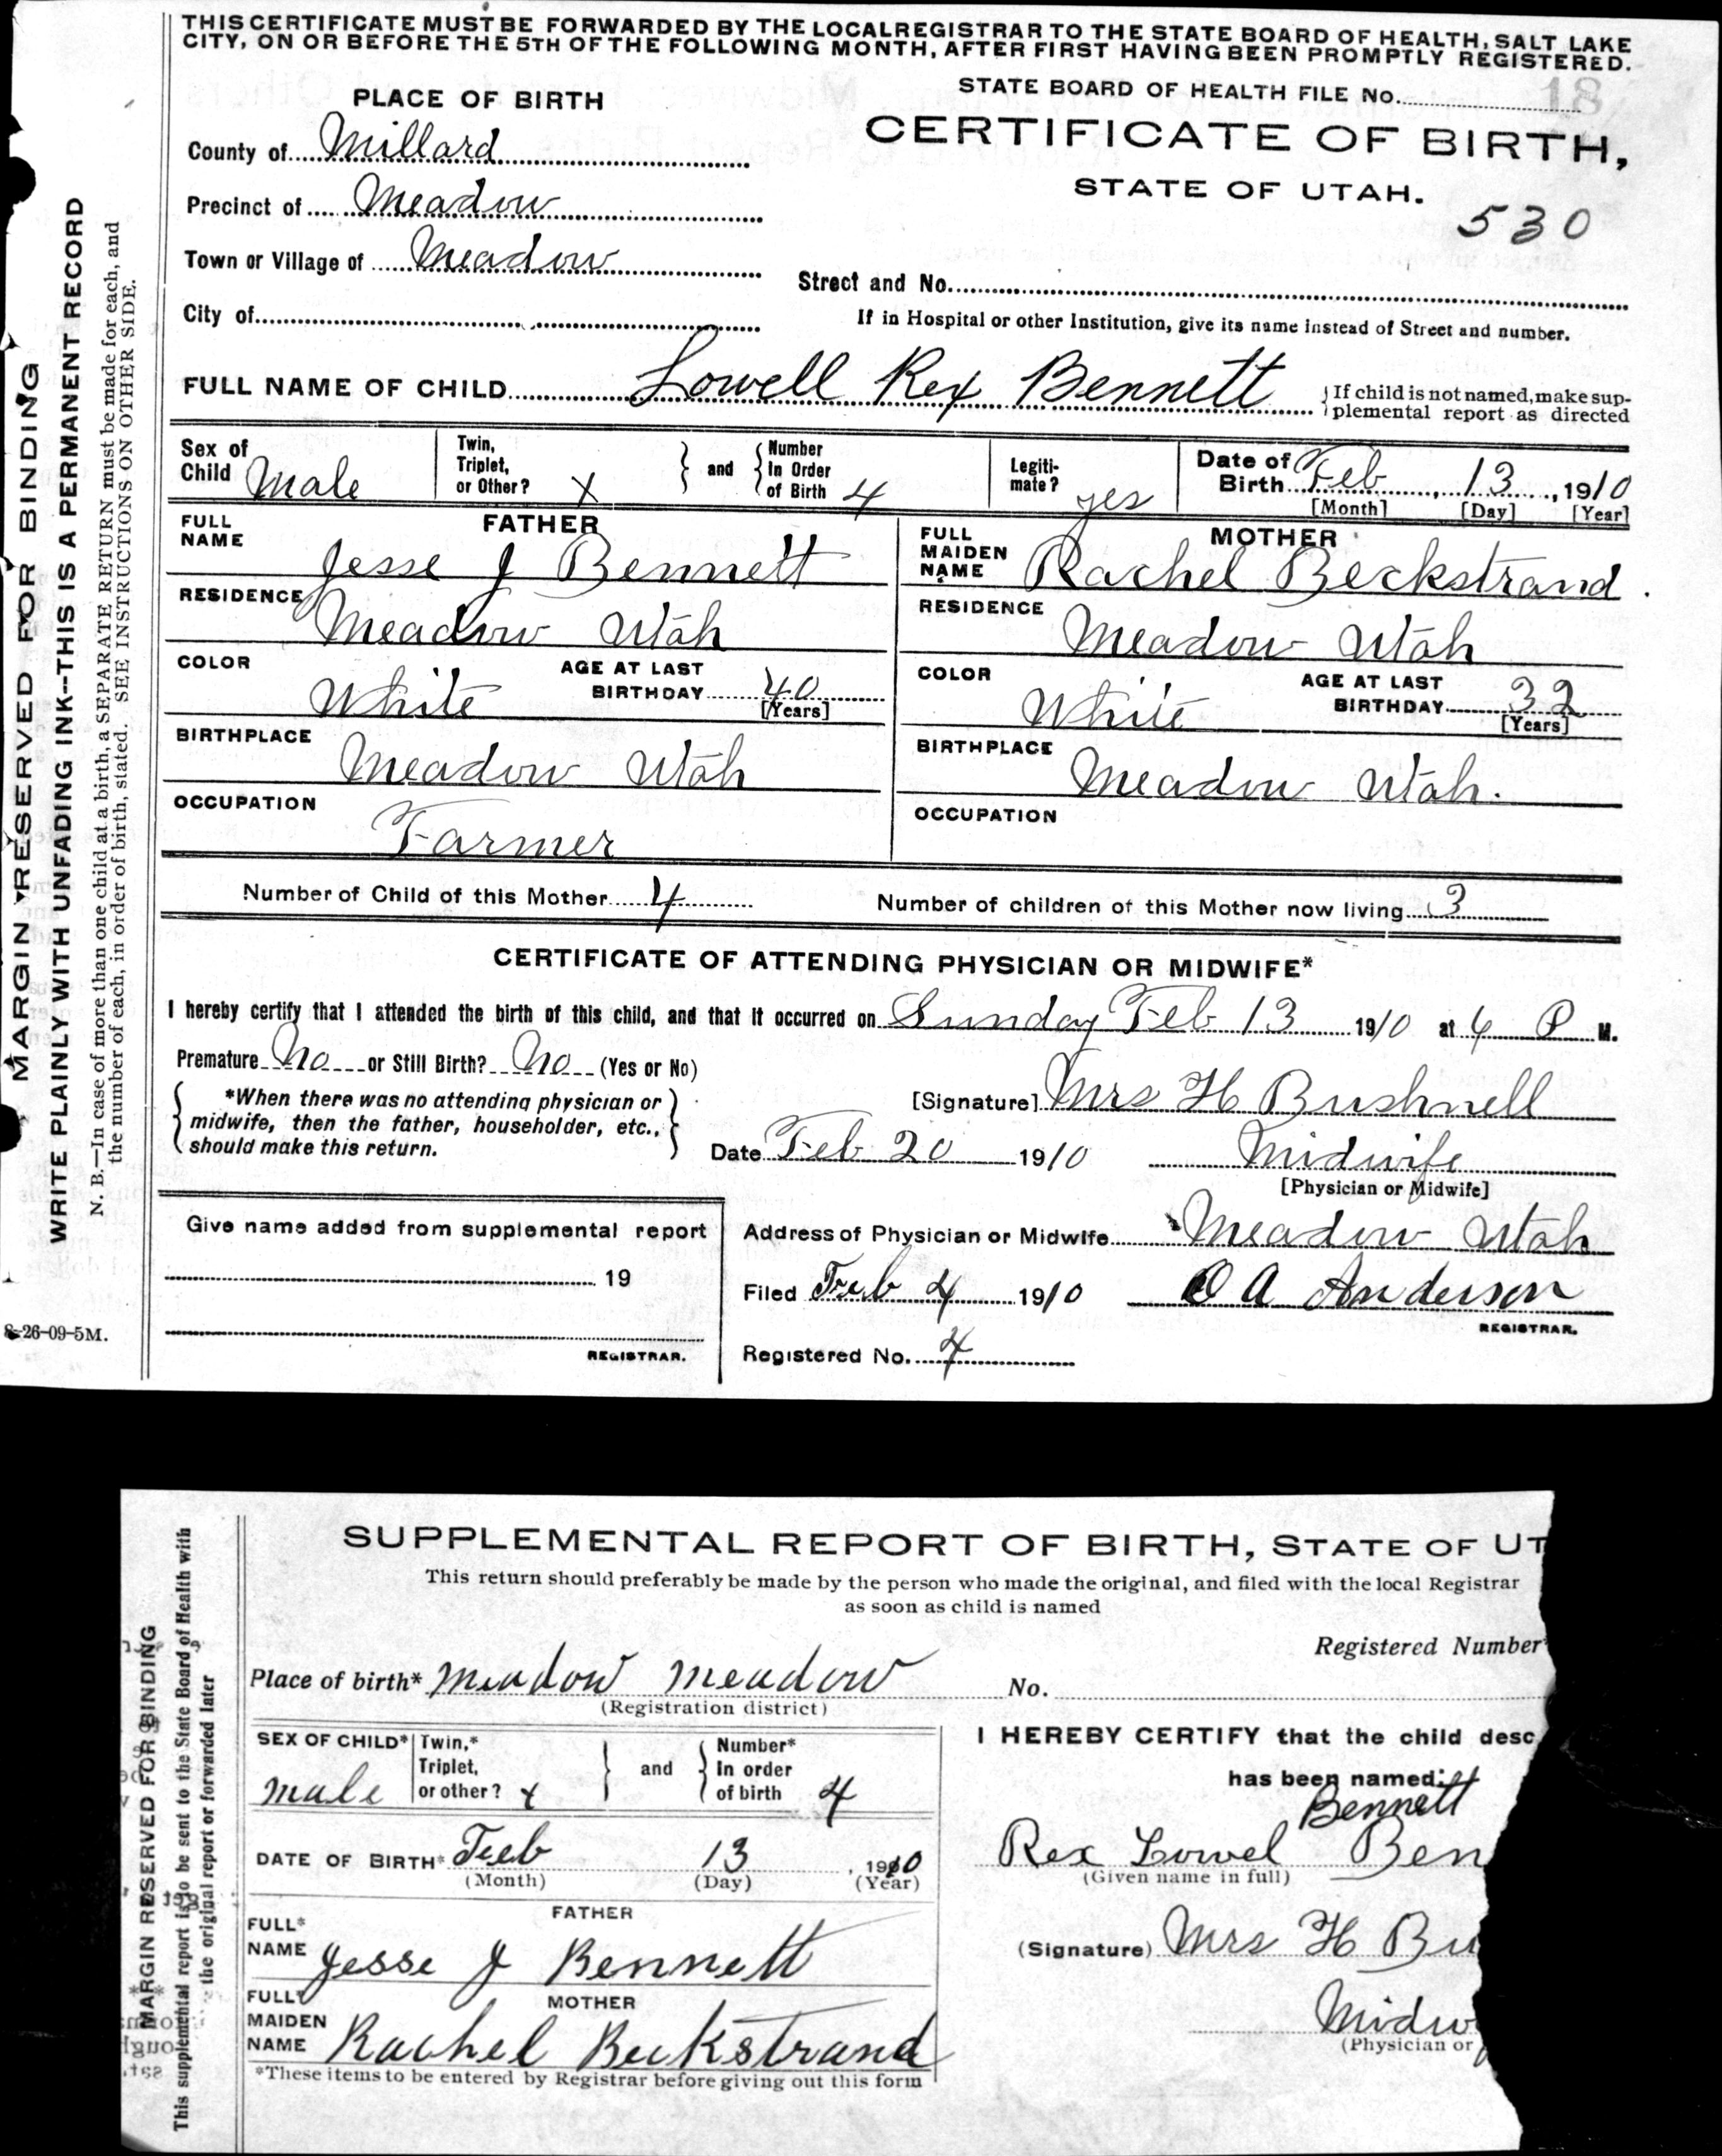 THIS CERTIFICATE MUST BE FORWARDED BY THE LOCAL REGISTRAR TO THE STATE BOARD OF HEALTH, SALT LAKE
CITY, ON OR BEFORE THE 5TH OF THE FOLLOWING MONTH, AFTER FIRST HAVING BEEN PROMPTLY REGISTERED.
PLACE OF BIRTH
STATE BOARD OF HEALTH FILE No. 18
CERTIFICATE OF BIRTH,
STATE OF UTAH.
530
County of Millard
Precinct of Meadow
Town or Village of Meadow
City of
Street and No.
If in Hospital or other Institution, give its name instead of Street and number.
FULL NAME OF CHILD Lowell Rex Bennett
If child is not named, make sup-
plemental report as directed
Sex of Child Male
Twin, Triplet, or Other? X
and
Number In Order of Birth 4
Legiti-mate? yes
Date of Birth Feb 13, 1910
[Month] [Day] [Year]
FATHER
FULL NAME Jesse J Bennett
RESIDENCE Meadow Utah
COLOR White
AGE AT LAST BIRTHDAY 40
[Years]
BIRTHPLACE Meadow Utah
OCCUPATION Farmer
MOTHER
FULL MAIDEN NAME Rachel Beckstrand.
RESIDENCE Meadow Utah
COLOR White
AGE AT LAST BIRTHDAY 32
[Years]
BIRTHPLACE Meadow Utah.
OCCUPATION
Number of Child of this Mother 4
Number of children of this Mother now living 3
CERTIFICATE OF ATTENDING PHYSICIAN OR MIDWIFE*
I hereby certify that I attended the birth of this child, and that it occurred on Sunday Feb 13 1910 at 4 P M.
Premature No or Still Birth? No (Yes or No)
*When there was no attending physician or
midwife, then the father, householder, etc.,
should make this return.
[Signature] Mrs H Bushnell
Date Feb 20 1910
Midwife
[Physician or Midwife]
Give name added from supplemental report
19
REGISTRAR.
Address of Physician or Midwife Meadow Utah
Filed Feb 4 1910
O A Anderson
REGISTRAR.
Registered No. 4
MARGIN RESERVED FOR BINDING
WRITE PLAINLY WITH UNFADING INK--THIS IS A PERMANENT RECORD
N. B.—In case of more than one child at a birth, a SEPARATE RETURN must be made for each, and
the number of each, in order of birth, stated. SEE INSTRUCTIONS ON OTHER SIDE.
8-26-09-5M.
SUPPLEMENTAL REPORT OF BIRTH, STATE OF UT
This return should preferably be made by the person who made the original, and filed with the local Registrar
as soon as child is named
Registered Number
Place of birth* Meadow Meadow
(Registration district)
No.
SEX OF CHILD* male
Twin,* Triplet, or other? x
and
Number* In order of birth 4
DATE OF BIRTH* Feeb 13, 1910
(Month) (Day) (Year)
FATHER
FULL* NAME Jesse J Bennett
MOTHER
FULL* MAIDEN NAME Rachel Beckstrand
*These items to be entered by Registrar before giving out this form
I HEREBY CERTIFY that the child desc
has been named:
Bennett
Rex Lowel Ben
(Given name in full)
(Signature) Mrs H Bu
Midw
(Physician or
MARGIN RESERVED FOR BINDING
This supplemental report is to be sent to the State Board of Health with
the original report or forwarded later